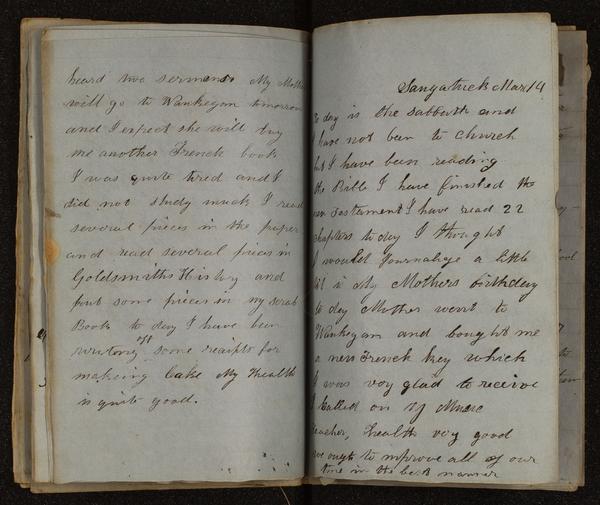 heard two sermons My Mother
will go to Waukegan tomorrow
and I expect she will buy
me another French book
I was quite tired and I
did not study much I read
several pieces in the paper
and read several pieces in
Goldsmiths History and
put some pieces in my scrab
Book to day I have been
writing off some reciepts for
making Cake My Health
is quite good.
Saugatuck Mar 14
To day is the sabbath and
I have not been to church
but I have been reading
the Bible I have finished the
new Testament I have read 22
chapters to day I thought
I would Journalize a little
it is My Mothers birthday
to day Mother went to
Waukegan and bought me
a new French key which
I was very glad to receive
I called on my Music
teacher, Health very good
we ought to improve all of our
time in the best manner